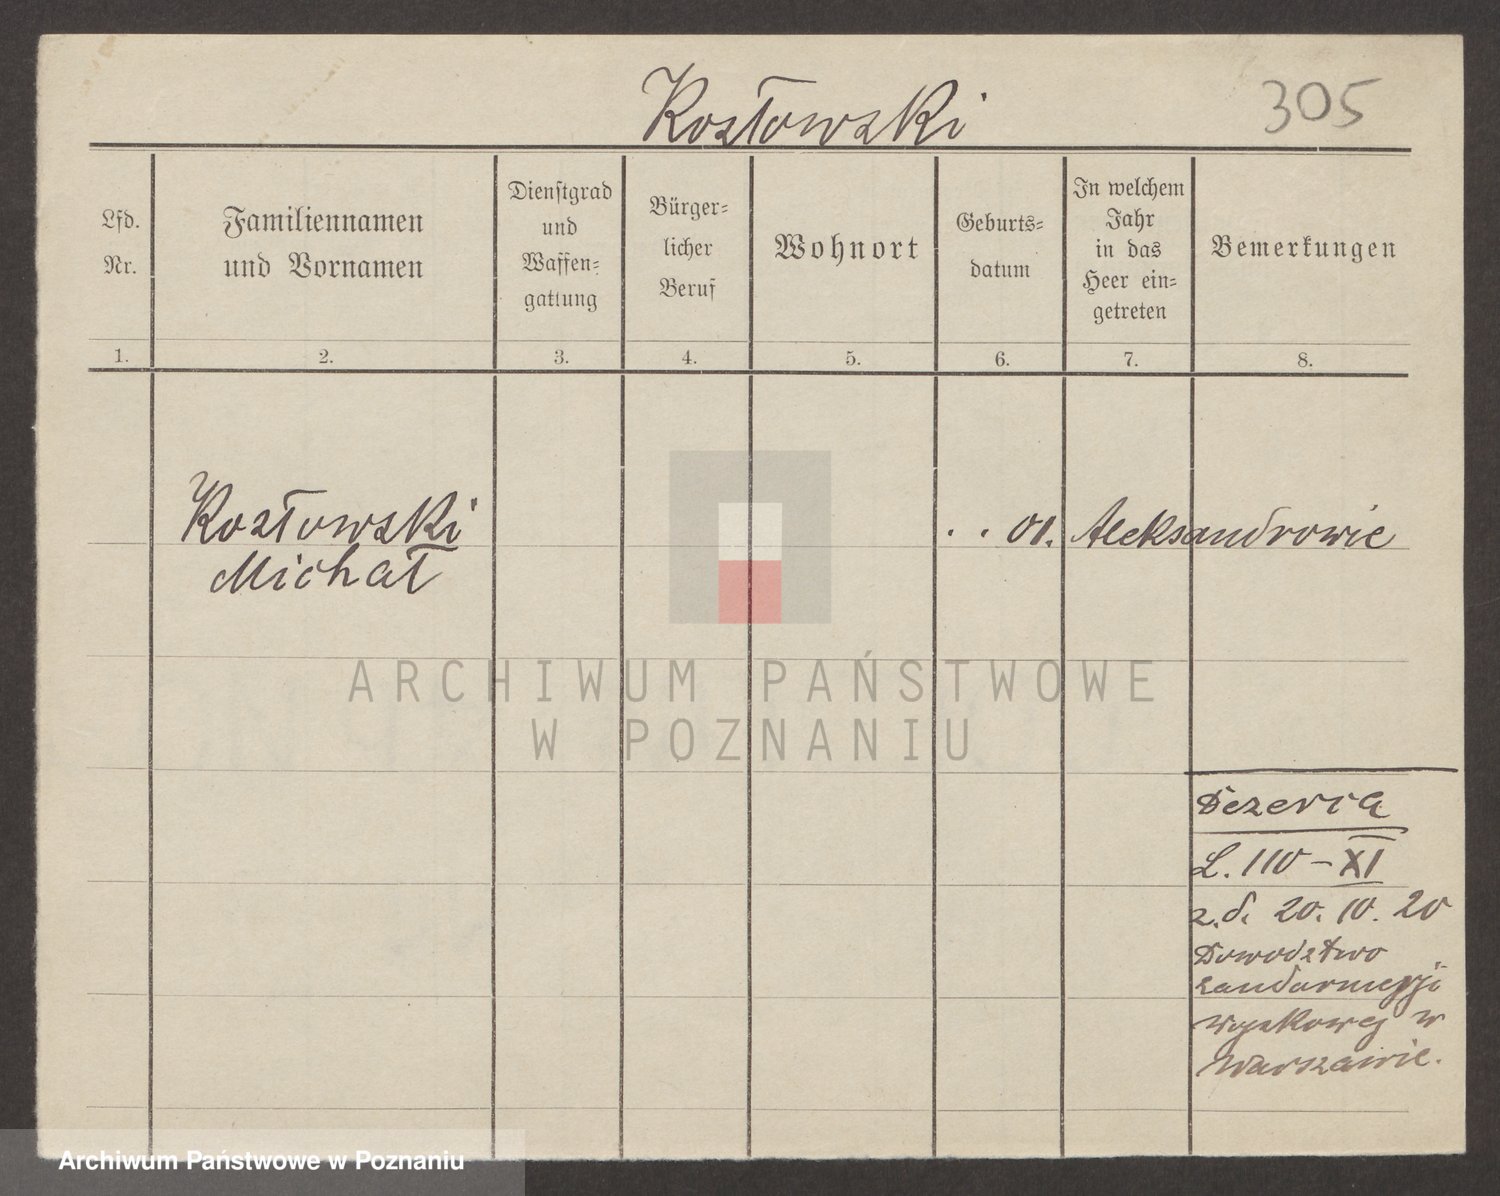 Kozłowski
305
Lfd.
Nr.
Familiennamen
und Vornamen
Dienstgrad
und
Waffen-
gattung
Bürger-
licher
Beruf
Wohnort
Geburts-
datum
In welchem
Jahr
in das
Heer ein-
getreten
Bemerkungen
1. 2. 3. 4. 5. 6. 7. 8.
Kozłowski
Michał
. . 01. Aleksandrowie
ARCHIWUM PAŃSTWOWE
W POZNANIU
L. 110 – XI
z. d. 20. 10. 20
Dowodztwo
żandarmerji
wojskowej w
Warszawie.
Archiwum Państwowe w Poznaniu